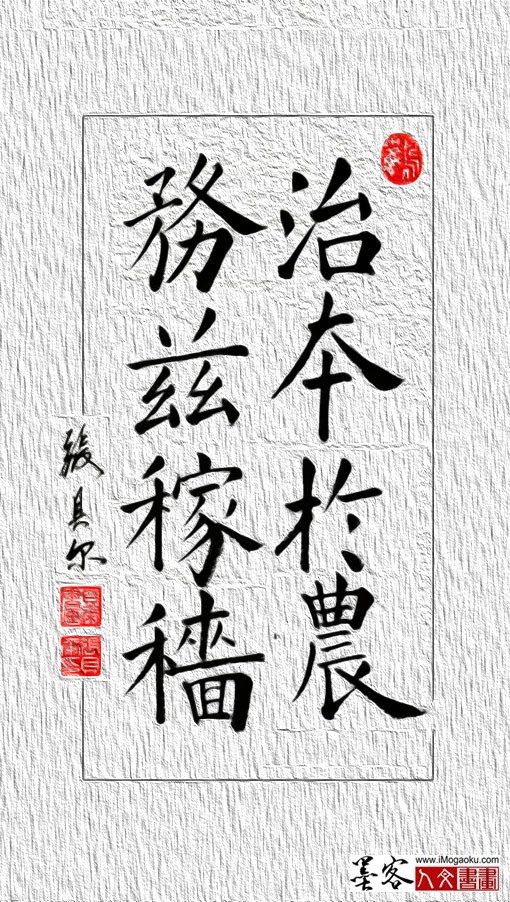 治本於農
務兹稼穡
墨客
www.iMogaoku.com
人文書畫